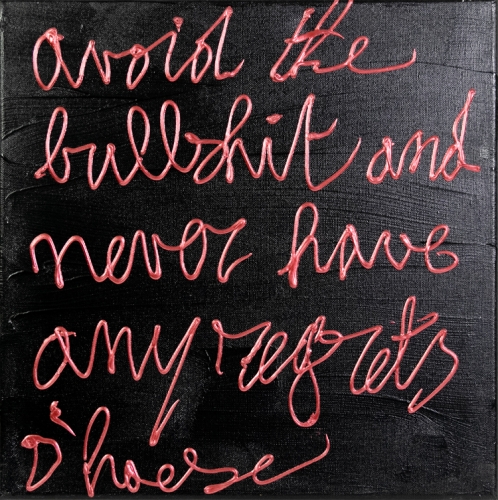 avoid the
bullshit and
never have
any regrets
D'haese